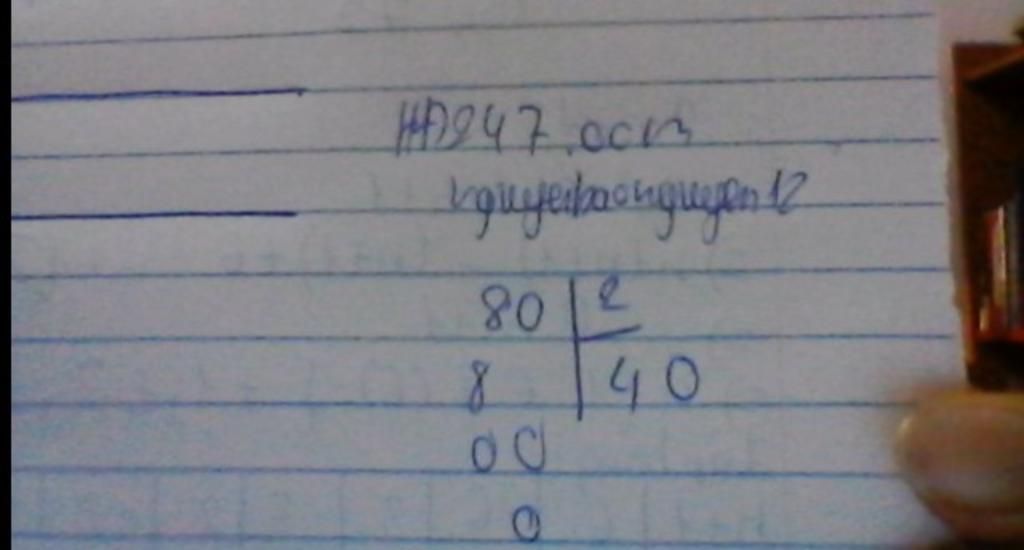 HD247.com
nguyenbaonguyen12
80 2
8 40
00
0